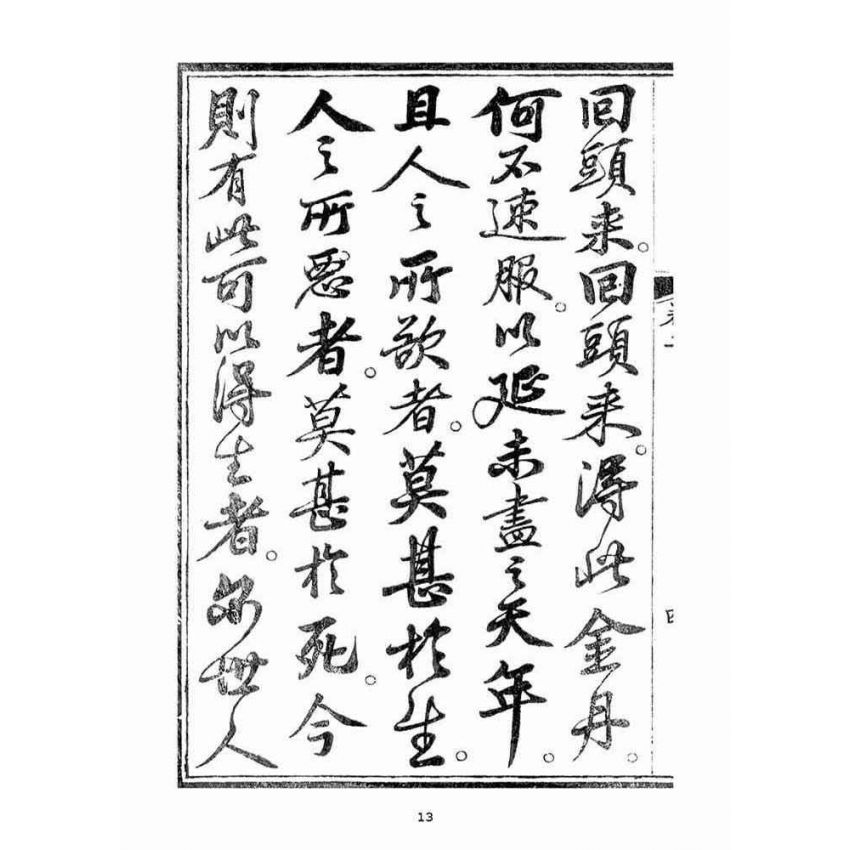 回頭来。回頭来。得此金丹。
何不速服。以延未盡之天年。
且人之所欲者。莫甚於生。
人之所惡者。莫甚於死。今
則有此可以得生者。尔世人
卷一
四
13